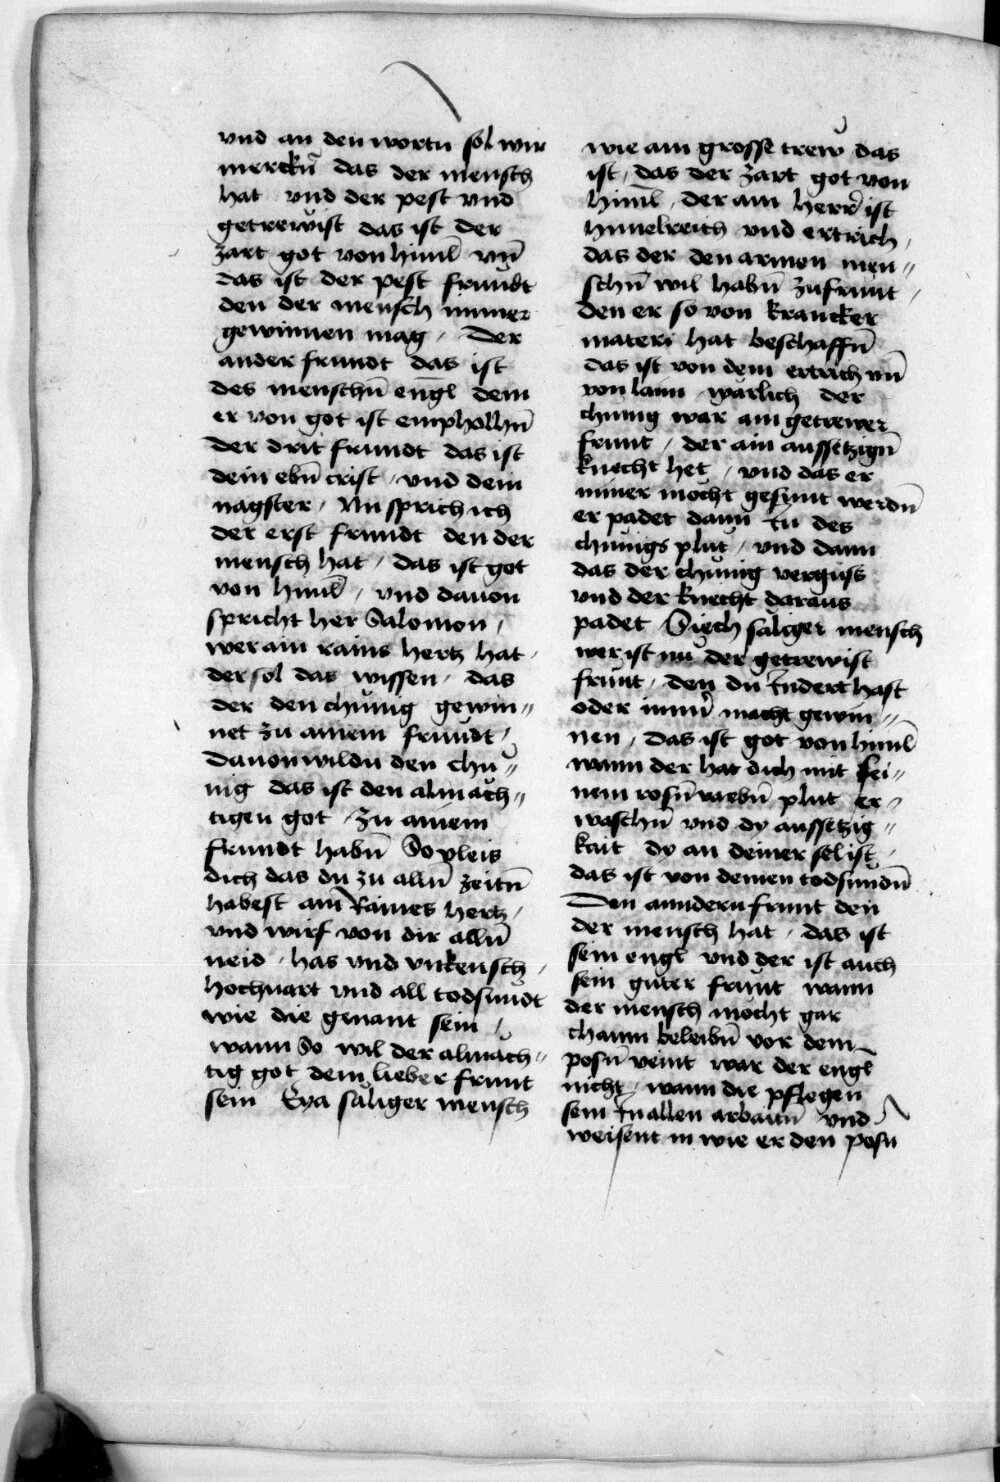 vnd an den wortn sol wir
merckn̄ das der mensch
hat vnd der pest vnd
getrewist das ist der
zart got von himl̄ vn̄
das ist der pest frundt
den der mensch immer
gewinnen mag / Der
ander frundt das ist
des menschn̄ engl dem
er von got ist emphollhn̄
Der drit frundt das ist
dein ebn̄ crist / vnd dein
nagster / Nu sprich ich
der erst frundt den der
mensch hat / das ist got
von himl̄ / vnd dauon
spricht her Salomon /
wer ain rains hertz hat /
der sol das wissen / das
der den chunig gewin〃
net zu ainem frundt /
Dauon wildu den chu〃
nig das ist den almach〃
tigen got / zu ainem
frundt habn̄ So vleis
dich das du zu alln̄ zeitn̄
habest ain Raines hertz /
vnd wirf von dir alln̄
neid / has vnd vnkeusch /
hochuart vnd all todsundt
wie die genant sein /
wann So wil der almach〃
tig got dein lieber frunt
sein Eya saliger mensch
wie ain grosse trew das
ist / das der zart got von
himl̄ / der ain herr ist
himelreich vnd ertrich /
das der den armen men〃
schn̄ wil habn̄ zu frunt /
den er so von krancker
materi hat beschaffn̄
das ist von dem ertrich vn̄
von laim warlich der
chunig war ain getrewer
frunt / der ain aussetzign̄
knecht het / vnd das er
nimer mocht gesunt werdn̄
er padet dann in des
chunigs plut / vnd dann
das der chunig vergüss
vnd der knecht daraus
padet / Siech saliger mensch
wer ist nu der getrewist
frunt / den du indert hast
oder imm̄ macht gewin〃
nen / das ist got von himl̄
wann der hat dich mit sei〃
nem rosn̄varbn̄ plut er〃
waschn̄ vnd dy aussetzig〃
kait dy an deiner sel ist /
das ist von deinen todsundn̄
Den anndern frunt den
der mensch hat / das ist
sein engl vnd der ist auch
sein guter frunt wann
der mensch mocht gar
chaum beleibn̄ vor dem
posn̄ veint war der engl̄
nicht / wann die pflegen
sein in allen arbaitn̄ vnd
weisent in wie er den posn